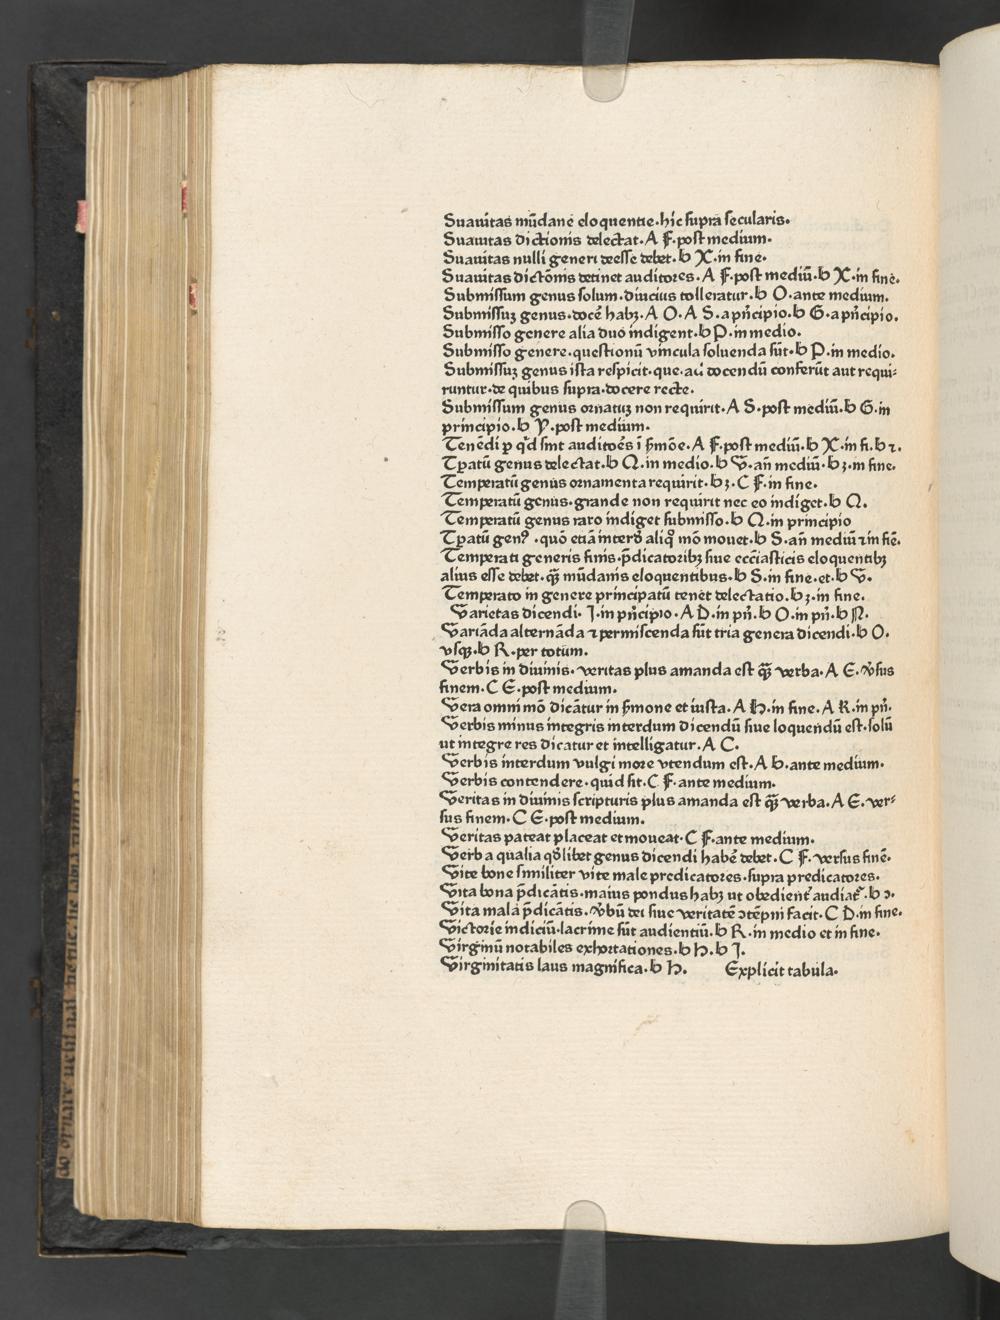 Suauitas mūdane eloquentie.hic supra secularis.
Suauitas dictionis delectat.A F.post medium.
Suauitas nulli generi deesse debet.b X.in fine.
Suauitas dictōnis detinet auditores.A F.post mediū.b X.in fine.
Submissum genus solum.diucius tolleratur.b O.ante medium.
Submissuꝫ genus.docē habꝫ.A O.A S.a pn̄cipio.b G.a pn̄cipio.
Submisso genere alia duo indigent.b P.in medio.
Submisso genere.questionū vincula soluenda sūt.b P.in medio.
Submissuꝫ genus ista respicit.que.ad docendū conferūt aut requi⸗
runtur.de quibus supra.docere recte.
Submissum genus ornatuꝫ non requirit.A S.post mediū.b G.in
principio.b Y.post medium.
Tenēdi ꝑ qd̄ sint auditoēs ī ẜmōe.A F.post mediū.b X.in fi.b ꝛ.
Tꝑatū genus delectat.b Q.in medio.b V.an̄ mediū.b ꝫ.in fine.
Temperatū genus ornamenta requirit.b ꝫ.C F.in fine.
Temperatū genus.grande non requirit nec eo indiget.b Q.
Temperatū genus raro indiget submisso.b Q.in principio
Tꝑatū genꝰ.quō etiā interd̄ aliq̄ mō mouet.b S.an̄ mediū ⁊ in fiē.
Temperati generis finis.p̄dicatoribꝫ siue ecc̄iasticis eloquentibꝫ
alius esse debet.qꝫ̄ mūdanis eloquentibus.b S.in fine.et.b V.
Temperato in genere principatū tenet delectatio.b ꝫ.in fine.
Varietas dicendi.I.in pn̄cipio.A D.in pn̄.b O.in pn̄.b N.
Variāda alternāda ⁊ permiscenda sūt tria genera dicendi.b O.
vsqꝫ.b R.per totum.
Verbis in diuinis.veritas plus amanda est qꝫ̄ verba.A E.v̓sus
finem.C E.post medium.
Vera omni mō dicātur in ẜmone et iusta.A H.in fine.A K.in pn̄.
Verbis minus integris interdum dicendū siue loquendū est.solū
ut integre res dicatur et intelligatur.A C.
Verbis interdum vulgi more vtendum est.A b.ante medium.
Verbis contendere.quid sit.C F.ante medium.
Veritas in diuinis scripturis plus amanda est qꝫ̄ verba.A E.ver⸗
sus finem.C E.post medium.
Veritas pateat placeat et moueat.C F.ante medium.
Verba qualia qd̄libet genus dicendi habē debet.C F.versus finē.
Vite bone similiter vite male predicatores.supra predicatores.
Vita bona p̄dicātis.maius pondus habꝫ ut obedient̄ audiat̄.b ɔ.
Vita mala p̄dicātis.v̓bū dei siue veritatē ɔtēpni facit.C D.in fine.
Victorie indiciū.lacrime sūt audientiū.b R.in medio et in fine.
Virginū notabiles exhortationes.b H.b I.
Virginitatis laus magnifica.b H. Explicit tabula.